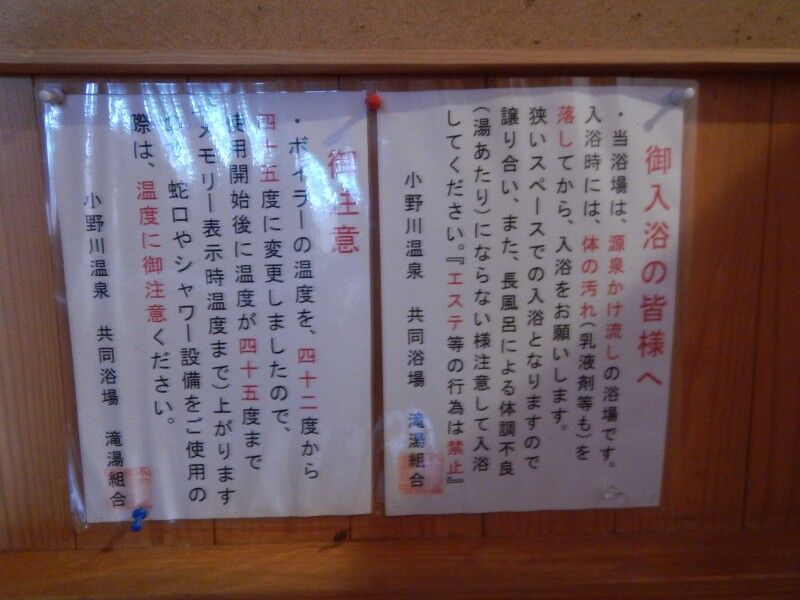 御入浴の皆様へ
・当浴場は、源泉かけ流しの浴場です。
入浴時には、体の汚れ(乳液剤等も)を
落してから、入浴をお願いします。
狭いスペースでの入浴となりますので
譲り合い、また、長風呂による体調不良
(湯あたり)にならない様注意して入浴
してください。『エステ等の行為は禁止』
小野川温泉 共同浴場 滝湯組合
御注意
・ボイラーの温度を、四十二度から
四十五度に変更しましたので、
使用開始後に温度が四十五度まで
メモリー表示時温度まで)上がります
蛇口やシャワー設備をご使用の
際は、温度に御注意ください。
小野川温泉 共同浴場 滝湯組合